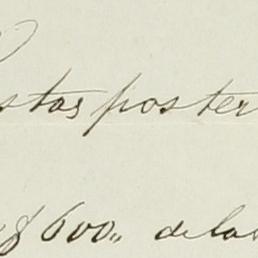 stas poster
600,, delas